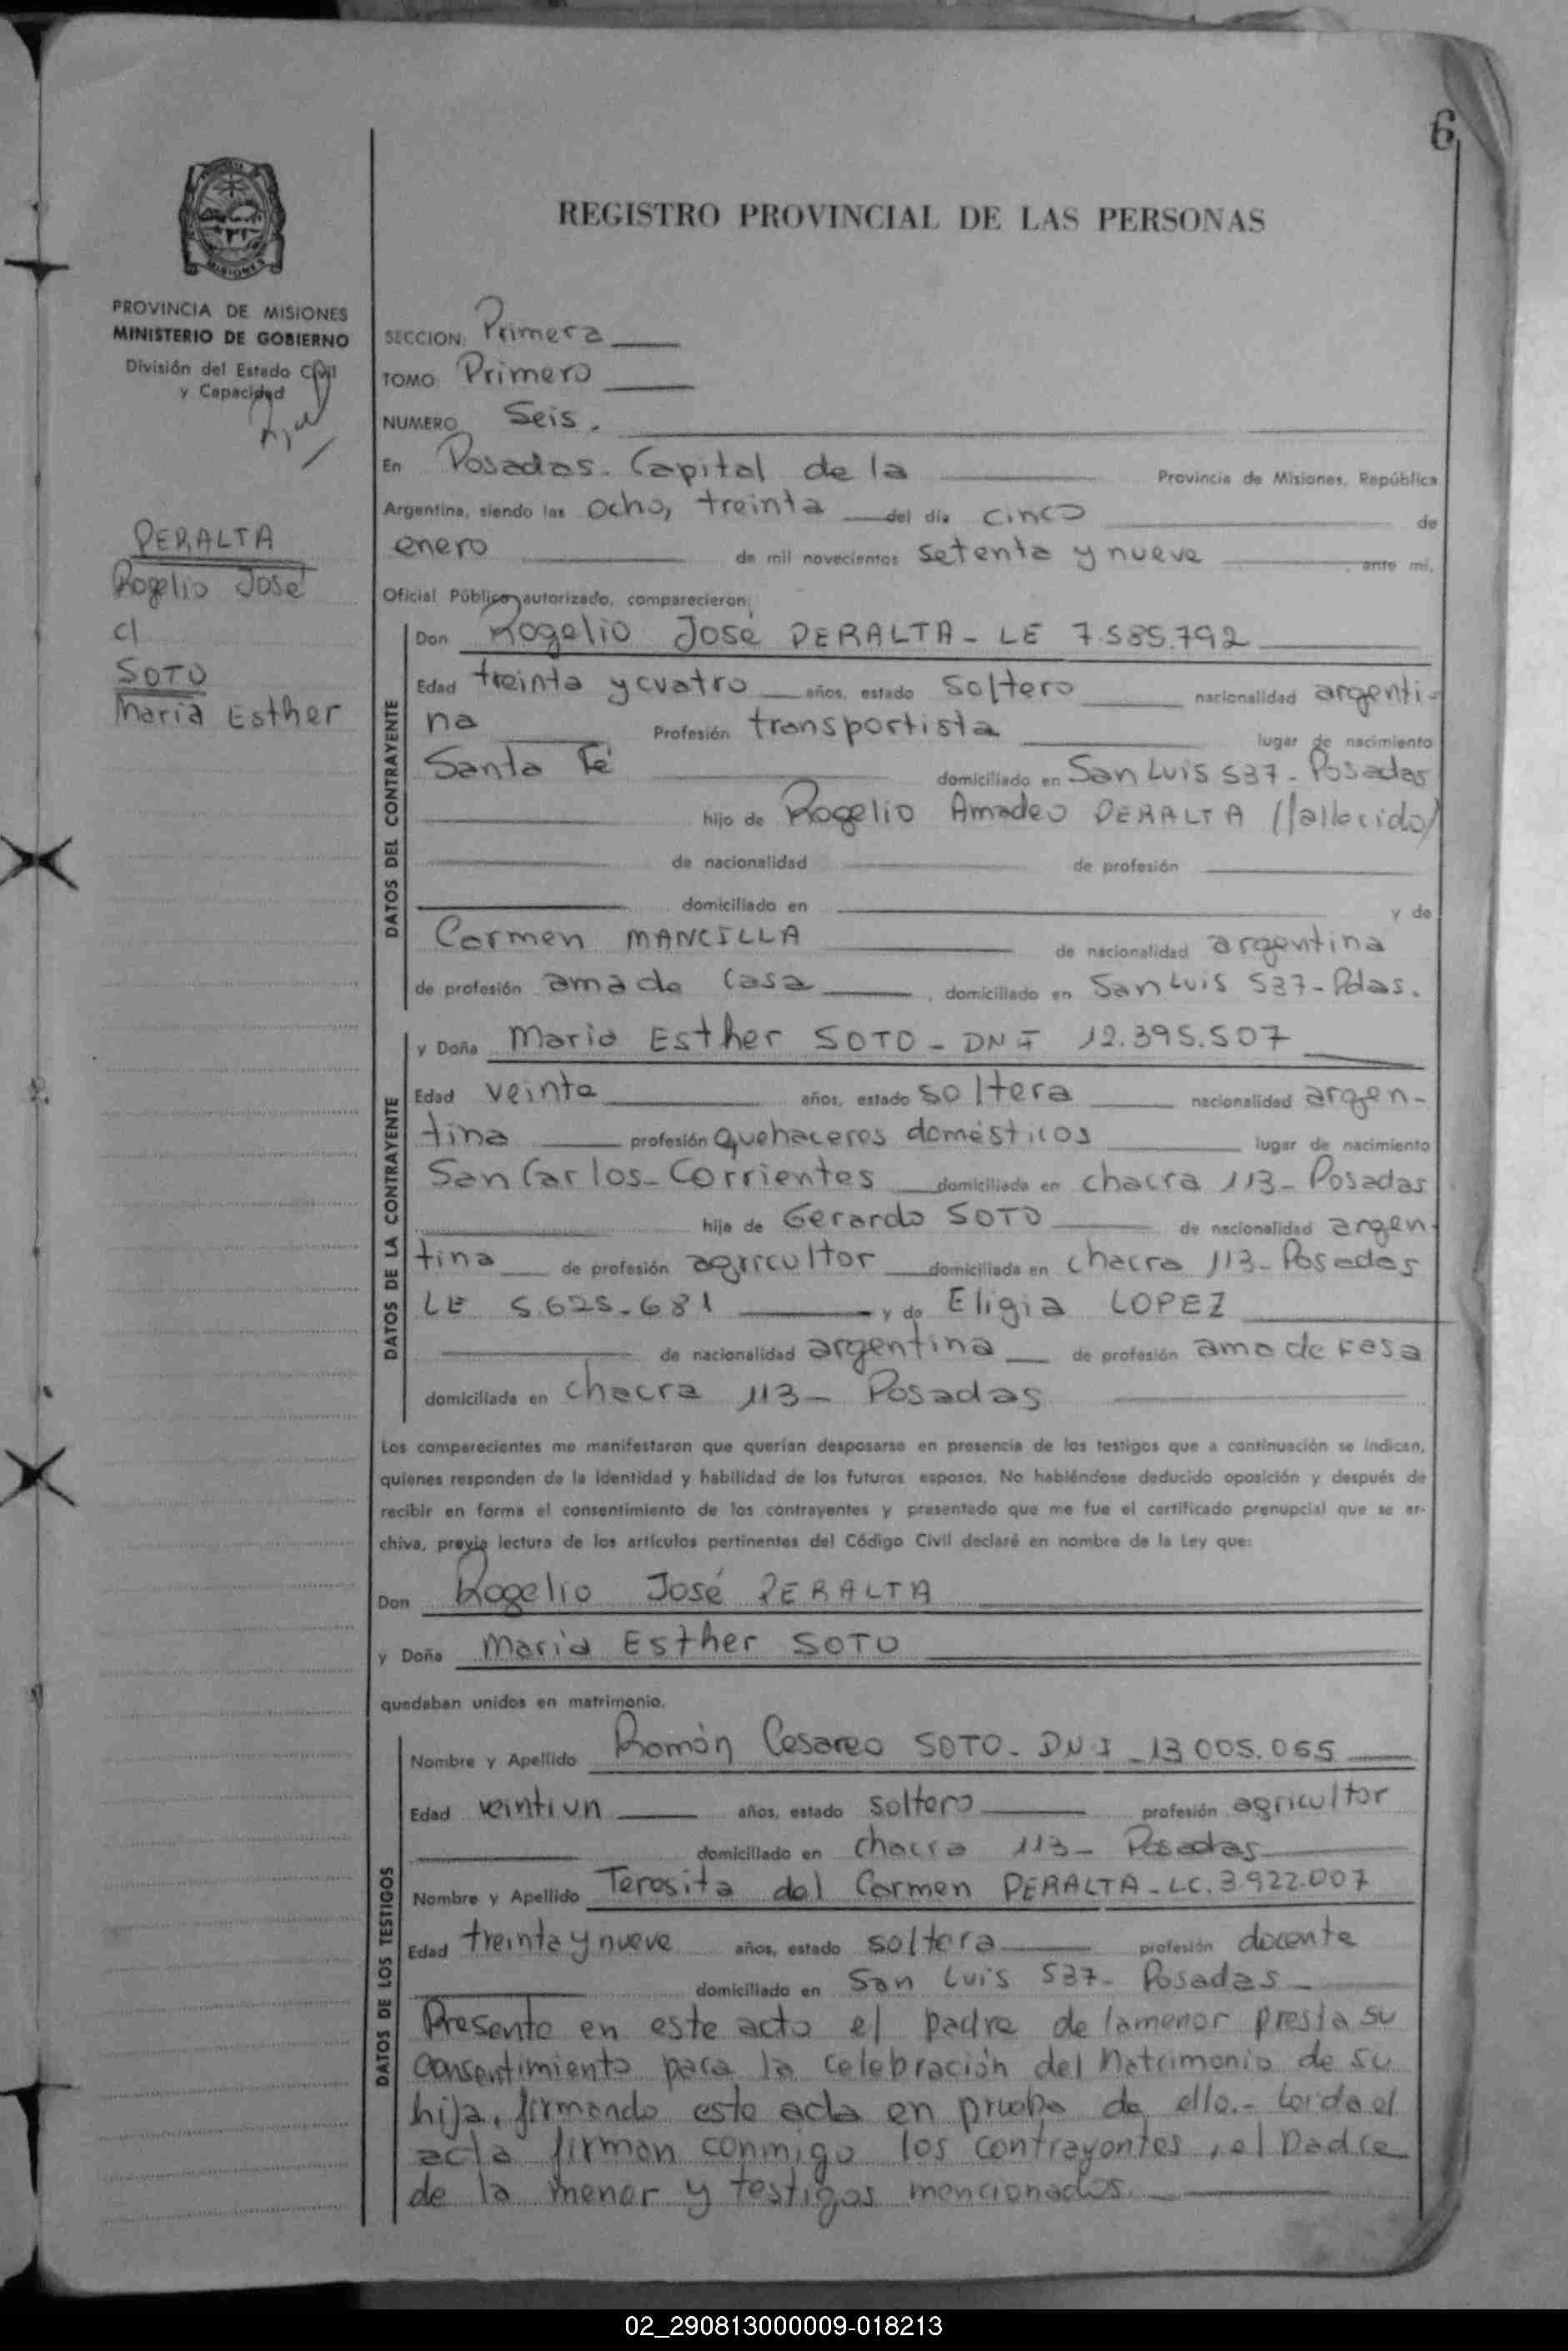 6
MISIONES
PROVINCIA DE MISIONES
MINISTERIO DE GOBIERNO
División del Estado Civil
y Capacidad
PERALTA
Rogelio José
c/
SOTO
María Esther
REGISTRO PROVINCIAL DE LAS PERSONAS
SECCION: Primera
TOMO: Primero
NUMERO Seis.
En Posadas. Capital de la Provincia de Misiones, República
Argentina, siendo las ocho, treinta del día cinco de
enero de mil novecientos setenta y nueve, ante mí,
Oficial Público autorizado, comparecieron:
DATOS DEL CONTRAYENTE
Don Rogelio José PERALTA - LE 7.585.792
Edad treinta y cuatro años, estado soltero nacionalidad argenti-
na Profesión transportista lugar de nacimiento
Santa Fé domiciliado en San Luis 537 - Posadas
hijo de Rogelio Amadeo PERALTA (fallecido)
de nacionalidad de profesión
domiciliado en y de
Carmen MANCILLA de nacionalidad argentina
de profesión ama de casa, domiciliado en San Luis 537 - Pdas.
DATOS DE LA CONTRAYENTE
y Doña María Esther SOTO - DNI 12.395.507
Edad veinte años, estado soltera nacionalidad argen-
tina profesión quehaceres domésticos lugar de nacimiento
San Carlos - Corrientes domiciliada en chacra 113 - Posadas
hija de Gerardo SOTO de nacionalidad argen-
tina de profesión agricultor domiciliada en chacra 113 - Posadas
LE 5.625.681 y de Eligia LOPEZ
de nacionalidad argentina de profesión ama de casa
domiciliada en chacra 113 - Posadas
Los comparecientes me manifestaron que querían desposarse en presencia de los testigos que a continuación se indican,
quienes responden de la identidad y habilidad de los futuros esposos. No habiéndose deducido oposición y después de
recibir en forma el consentimiento de los contrayentes y presentado que me fue el certificado prenupcial que se ar-
chiva, previa lectura de los artículos pertinentes del Código Civil declaré en nombre de la Ley que:
Don Rogelio José PERALTA
y Doña María Esther SOTO
quedaban unidos en matrimonio.
DATOS DE LOS TESTIGOS
Nombre y Apellido Román Cesareo SOTO - DNI - 13.005.065
Edad veintiun años, estado soltero profesión agricultor
domiciliado en chacra 113 - Posadas
Nombre y Apellido Teresita del Carmen PERALTA - LC. 3.922.007
Edad treinta y nueve años, estado soltera profesión docente
domiciliado en San Luis 537 - Posadas
Presente en este acto el padre de la menor presta su
consentimiento para la celebración del Matrimonio de su
hija, firmando este acta en prueba de ello.- Leída el
acta firman conmigo los contrayentes, el padre
de la menor y testigos mencionados.
02_290813000009-018213